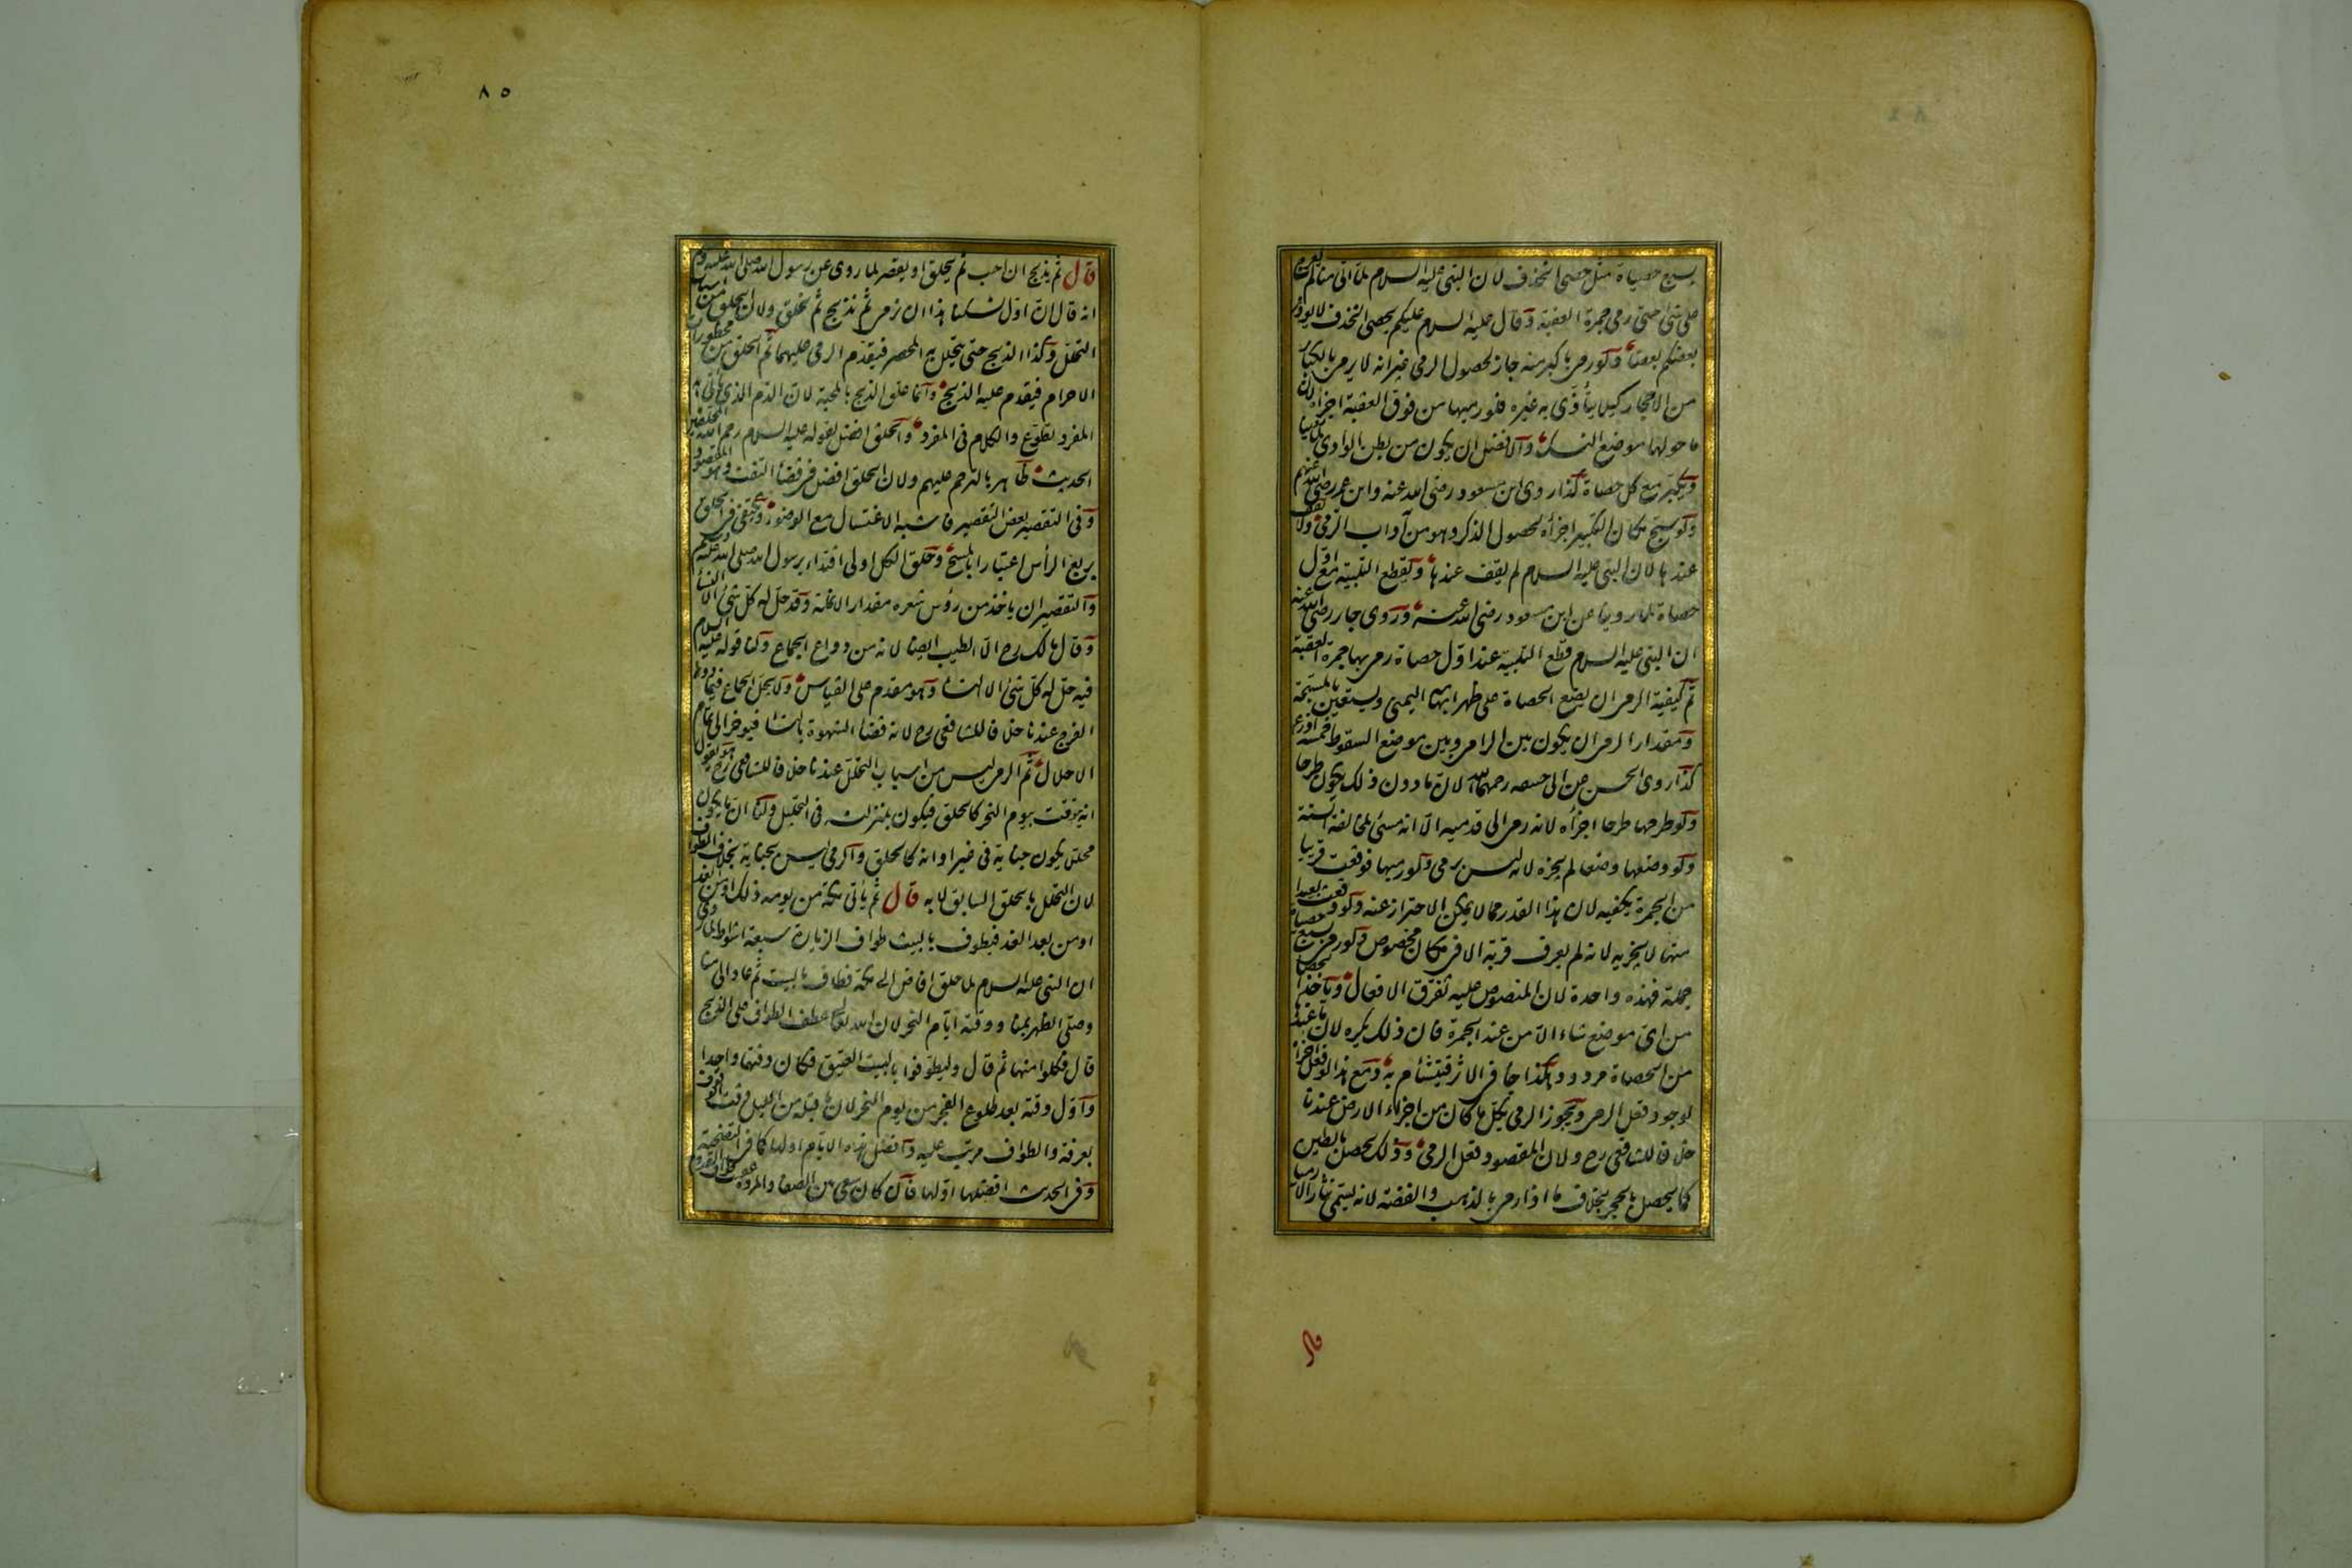 بسبع حصياة مثل حصى الخذف لان النبى عليه السلام لما اتى منا لم يعرج
على شئ حتى رمى جمرة العقبة وقال عليه السلام عليكم بحصى الخذف لا يوذى
بعضكم بعضا ولو رمى باكبر منه جاز لحصول الرمى غير انه لا يرمى بالكبار
من الاحجار كيلا يتأذى به غيره فلو رميها من فوق العقبة اجزأه لان
ما حولها موضع النسك والافضل ان يكون من بطن الوادى لما روينا
ويكبر مع كل حصاة كذا روى ابن مسعود رضى الله عنه وابن عمر رضى الله عنهم
ولو سبح مكان التكبير اجزأه لحصول الذكر وهو من آداب الرمى ولا يقف
عندها لان النبى عليه السلام لم يقف عندها ويقطع التلبية مع اول
حصاة لما روينا عن ابن مسعود رضى الله عنه وروى جابر رضى الله عنه
ان النبى عليه السلام قطع التلبية عند اول حصاة رمى بها جمرة العقبة
ثم كيفية الرمى ان يضع الحصاة على ظهر ابهامه اليمنى ويستعين بالمسبحة
ومقدار الرمى ان يكون بين الرامى وبين موضع السقوط خمسة اذرع
كذا روى الحسن عن ابى حنيفه رحمهما الله لان ما دون ذلك يكون طرحا
ولو طرحها طرحا اجزأه لانه رمى الى قدميه الا انه مسئ لمخالفة السنة
ولو وضعها وضعا لم يجزه لانه ليس برمى ولو رميها فوقعت قريبا
من الجمرة يكفيه لان هذا القدر مما لا يمكن الاحتراز عنه ولو وقعت بعيدا
منها لا يجزيه لانه لم يعرف قربة الا فى مكان مخصوص ولو رمى بسبع حصياة
جملة فهذه واحدة لان المنصوص عليه تفرق الافعال ويأخذ الحصا
من اى موضع شاء الا من عند الجمرة فان ذلك يكره لان ما عندها
من الحصاة مردود هكذا جاء فى الاثر فيتشأم به ومع هذا لو فعل اجزأه
لوجود فعل الرمى ويجوز الرمى بكل ما كان من اجزاء الارض عندنا
خلافا للشافعى رح ولان المقصود فعل الرمى وذلك يحصل بالطين
كما يحصل بالحجر بخلاف ما اذا رمى بالذهب والفضة لانه يسمى نثارا لا رميا
قال
٨٥
قال ثم يذبح ان احب ثم يحلق او يقصر لما روى عن رسول الله صلى الله عليه وم
انه قال ان اول نسكنا هذا ان نرمى ثم نذبح ثم نحلق ولان الحلق من اسباب
التحلل وكذا الذبح حتى يتحلل به المحصر فيقدم الرمى عليهما ثم الحلق من محظورات
الاحرام فيقدم عليه الذبح وانما علق الذبح بالمحبة لان الدم الذى يأتى به
المفرد تطوع والكلام فى المفرد والحلق افضل لقوله عليه السلام رحم الله المحلقين
الحديث ظاهر بالترحم عليهم ولان الحلق افضل فى قضأ التفث وهو المقصود
وفى التقصير بعض التقصير فاشبه الاغتسال مع الوضوء ويكتفى فى الحلق
بربع الرأس اعتبارا بالمسح وحلق الكل اولى اقتداء برسول الله صلى الله عليه وم
والتقصير ان ياخذ من رؤس شعره مقدار الانملة وقد حل له كل شئ الا النسأ
وقال مالك رح الا الطيب ايضا لانه من دواع الجماع ولنا قوله عليه السلام
فيه حل له كل شئ الا النسأ وهو مقدم على القياس ولا يحل الجماع فيما دون
الفرج عندنا خلافا للشافعى رح لانه قضأ الشهوة بالنسأ فيوخر الى تمام
الاحلال ثم الرمى ليس من اسباب التحلل عندنا خلافا للشافعى رح هو يقول
انه يتوقت بيوم النحر كالحلق فيكون بمنزلته فى التحليل ولنا ان ما يكون
محللا يكون جناية فى غير اوانه كالحلق والرمى ليس بجناية بخلاف الطواف
لان التحلل بالحلق السابق لا به قال ثم يأتى مكة من يومه ذلك او من الغد
او من بعد الغد فيطوف بالبيت طواف الزيارة سبعة اشواط لما روى
ان النبى عليه السلام لما حلق افاض الى مكة فطاف بالبيت ثم عاد الى منا
وصلى الظهر بمنا ووقته ايام النحر لان الله تعالى عطف الطواف على الذبح
قال فكلوا منها ثم قال وليطوفوا بالبيت العتيق فكان وقتهما واحدا
واول وقته بعد طلوع الفجر من يوم النحر لان ما قبله من الليل وقت الوقوف
بعرفة والطواف مرتب عليه وافضل هذه الايام اولها كما فى التضحية
وفى الحديث افضلها اولها فان كان سعى بين الصفا والمروة عقيب طواف القدوم